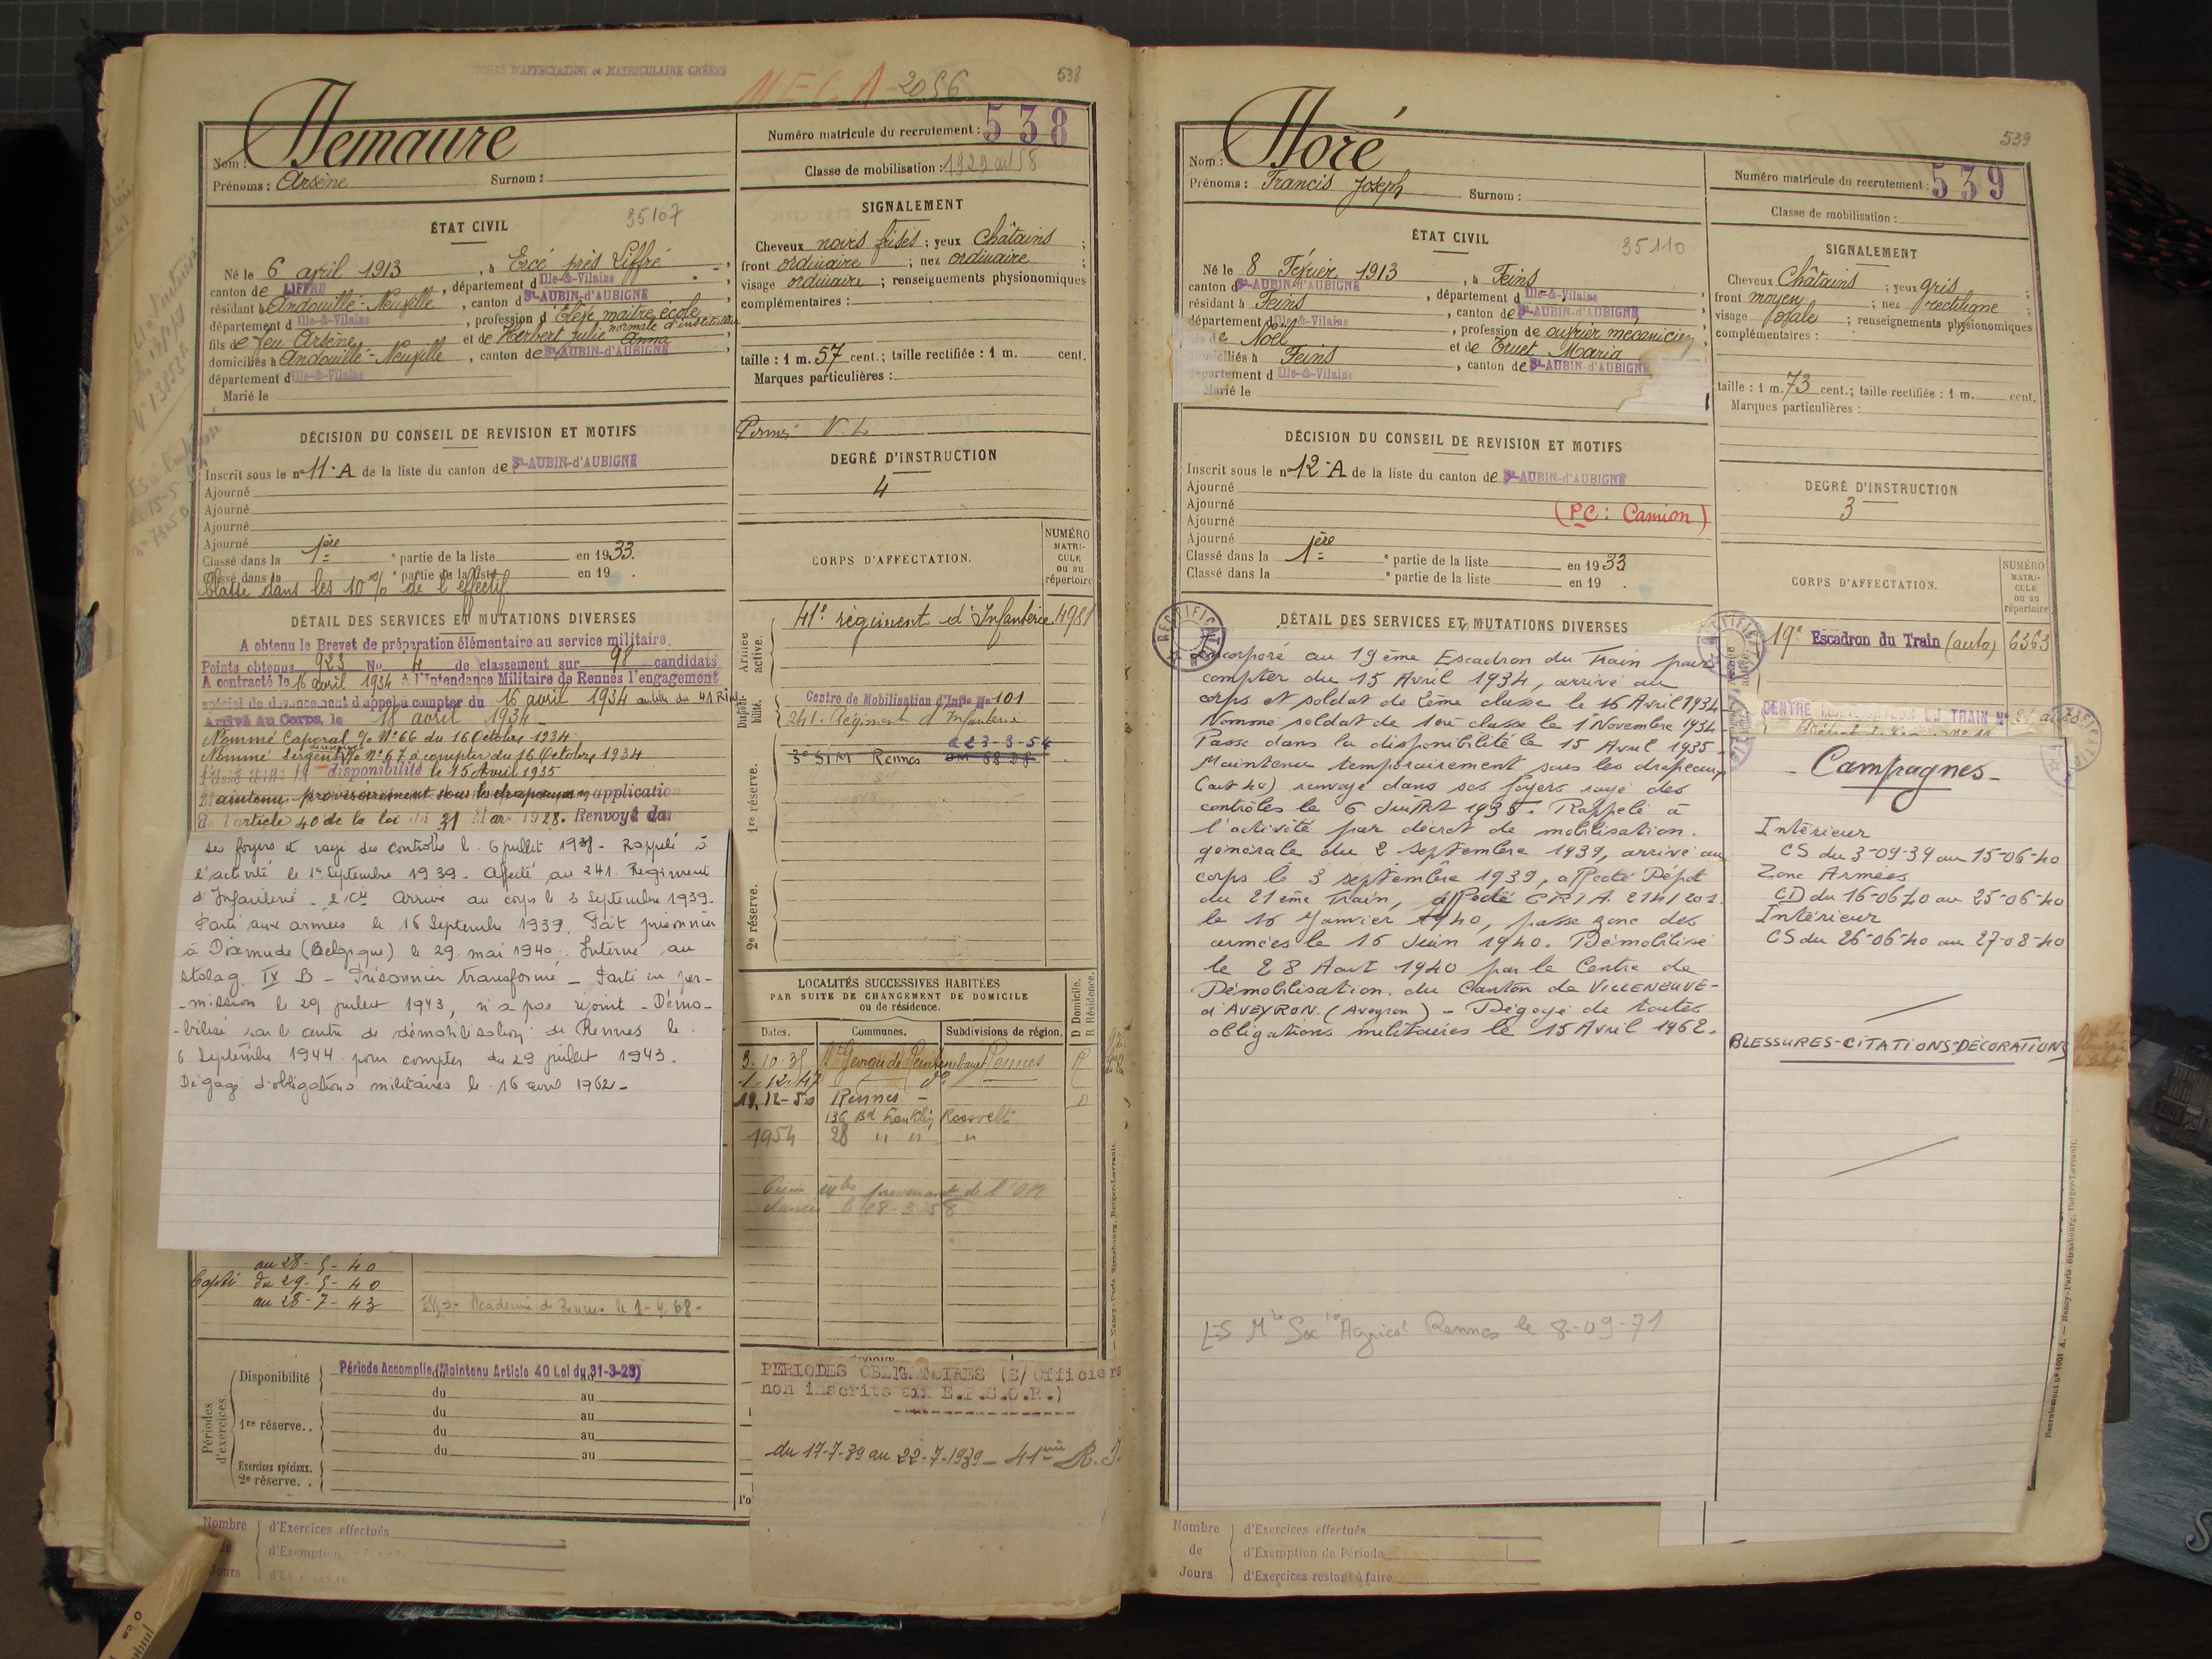 D'AFFECTATION & MATRICULAIRE CRÉÉES
2056
538
Nom : Hemaure
Prénoms : Arsène Surnom :
Numéro matricule du recrutement : 538
Classe de mobilisation : 1929
ÉTAT CIVIL
35107
Né le 6 avril 1913, à Ercé près Liffré,
canton de LIFFRÉ, département d Ille-&-Vilaine
résidant à Andouillé-Neuville, canton d St-AUBIN-d'AUBIGNÉ
département d Ille-&-Vilaine, profession d Elève maître école
normale d'instituteur
fils de feu Arsène et de Herbert Julie Anna
domiciliés à Andouillé-Neuville, canton de St-AUBIN-d'AUBIGNÉ
département d Ille-&-Vilaine
Marié le
SIGNALEMENT
Cheveux noirs frisés ; yeux Châtains ;
front ordinaire ; nez ordinaire ;
visage ordinaire ; renseignements physionomiques
complémentaires :
taille : 1 m. 57 cent.; taille rectifiée : 1 m. cent.
Marques particulières :
Permis V. L
DEGRÉ D'INSTRUCTION
4
DÉCISION DU CONSEIL DE REVISION ET MOTIFS
Inscrit sous le n° 11-A de la liste du canton de St-AUBIN-d'AUBIGNÉ
Ajourné
Ajourné
Ajourné
Ajourné
Classé dans la 1ère partie de la liste en 1933.
Classé dans la partie de la liste en 19 .
Classé dans les 10 % de l'effectif
CORPS D'AFFECTATION.
NUMÉRO MATRICULE ou au répertoire
Armée active.
41e régiment d'Infanterie 4981
Disponibilité.
Centre de Mobilisation d'Infie N° 101
241. Régiment d'Infanterie
1re réserve.
à 23-3-54
3e SIM Rennes
2e réserve.
DÉTAIL DES SERVICES ET MUTATIONS DIVERSES
A obtenu le Brevet de préparation élémentaire au service militaire.
Points obtenus 923 No 4 de classement sur 98 candidats
A contracté le 16 avril 1934 à l'Intendance Militaire de Rennes l'engagement
spécial de devancement d'appel à compter du 16 avril 1934 au titre du 41 RI
Arrivé Au Corps, le 18 avril 1934
Nommé Caporal N° 66 du 16 Octobre 1934
Nommé Sergent N° 67 à compter du 16 Octobre 1934
Passé dans la disponibilité le 15 Avril 1935
Maintenu provisoirement sous les drapeaux application
de l'article 40 de la loi du 31 Mars 1928. Renvoyé dans
ses foyers et rayé des contrôles le 6 juillet 1935 - Rappelé à
l'activité le 1er Septembre 1939 - Affecté au 241. Régiment
d'Infanterie - 2e Cie Arrivé au corps le 3 Septembre 1939 -
Parti aux armées le 16 Septembre 1939. Fait prisonnier
à Dixmude (Belgique) le 29 mai 1940. Interné au
Stalag IX B - Prisonnier transformé - Parti en per-
-mission le 29 juillet 1943, n'a pas rejoint - Démo-
-bilisé par le centre de démobilisation de Rennes le
6 Septembre 1944 pour compter du 29 juillet 1943.
Dégagé d'obligations militaires le 16 avril 1962 -
au 28-5-40
Capti du 29-5-40
au 28-7-43
Académie de Rennes le 1-4-68-
LOCALITÉS SUCCESSIVES HABITÉES
PAR SUITE DE CHANGEMENT DE DOMICILE
ou de résidence.
Dates. Communes. Subdivisions de région. D Domicile. R Résidence.
3.10.35 St Georges de Reintembault Rennes R
1.12.47 do
18.12-50 Rennes - D
136 Bd Franklin Roosvelt
1954 28 " " "
provenant de l'OM
le 28-3-58
Périodes d'exercices.
Disponibilité Période Accomplie (Maintenu Article 40 Loi du 31-3-28)
du au
1re réserve.. du au
du au
du au
Exercices spéciaux.
2e réserve. .
PERIODES OBLIGATOIRES (S/Officiers
non inscrits aux E.P.S.O.R.)
du 17-7-39 au 22-7-1939 - 41ème R.I.
Nombre de Jours
d'Exercices effectués
d'Exemption
539
Nom : Horé
Prénoms : Francis Joseph Surnom :
Numéro matricule du recrutement : 539
Classe de mobilisation :
ÉTAT CIVIL
35110
Né le 8 Février 1913, à Feins
canton d St-AUBIN-d'AUBIGNÉ, département d Ille-&-Vilaine
résidant à Feins, canton de St-AUBIN-d'AUBIGNÉ
département d Ille-&-Vilaine, profession de ouvrier mécanicien
fils de Noël et de Truet Maria
domiciliés à Feins, canton de St-AUBIN-d'AUBIGNÉ
département d Ille-&-Vilaine
Marié le
SIGNALEMENT
Cheveux Châtains ; yeux gris ;
front moyen ; nez rectiligne ;
visage ovale ; renseignements physionomiques
complémentaires :
taille : 1 m. 73 cent.; taille rectifiée : 1 m. cent.
Marques particulières :
DEGRÉ D'INSTRUCTION
3
DÉCISION DU CONSEIL DE REVISION ET MOTIFS
Inscrit sous le n° 12-A de la liste du canton de St-AUBIN-d'AUBIGNÉ
Ajourné
Ajourné
Ajourné (PC : Camion)
Ajourné
Classé dans la 1ère partie de la liste en 1933
Classé dans la partie de la liste en 19 .
CORPS D'AFFECTATION.
NUMÉRO MATRICULE ou au répertoire
19e Escadron du Train (auto) 6363
CENTRE MOBILISATION DU TRAIN N°
DÉTAIL DES SERVICES ET MUTATIONS DIVERSES
Incorporé au 19ème Escadron du Train pour
compter du 15 Avril 1934, arrivé au
corps et soldat de 2ème classe le 16 Avril 1934 -
Nommé soldat de 1ère classe le 1 Novembre 1934 -
Passé dans la disponibilité le 15 Avril 1935 -
Maintenu temporairement sous les drapeaux
(art 40) renvoyé dans ses foyers rayé des
contrôles le 6 Juillet 1935. Rappelé à
l'activité par décret de mobilisation.
générale du 2 septembre 1939, arrivé au
corps le 3 septembre 1939, affecté Dépôt
du 21ème Train, affecté C.R.T.A. 214/201
le 16 Janvier 1940, passe zone des
armées le 16 Juin 1940. Démobilisé
le 28 Août 1940 par le Centre de
Démobilisation. du Canton de VILLENEUVE-
d'AVEYRON. (Aveyron) - Dégagé de toutes
obligations militaires le 15 Avril 1962.
- Campagnes -
Intérieur
CS du 3-09-39 au 15-06-40
Zone Armées
CD du 16-06-40 au 25-06-40
Intérieur
CS du 26-06-40 au 27-08-40
BLESSURES-CITATIONS-DÉCORATIONS
ES Mle Soc Agricol Rennes le 8-09-71
Nombre de Jours
d'Exercices effectués
d'Exemption de Période
d'Exercices restant à faire